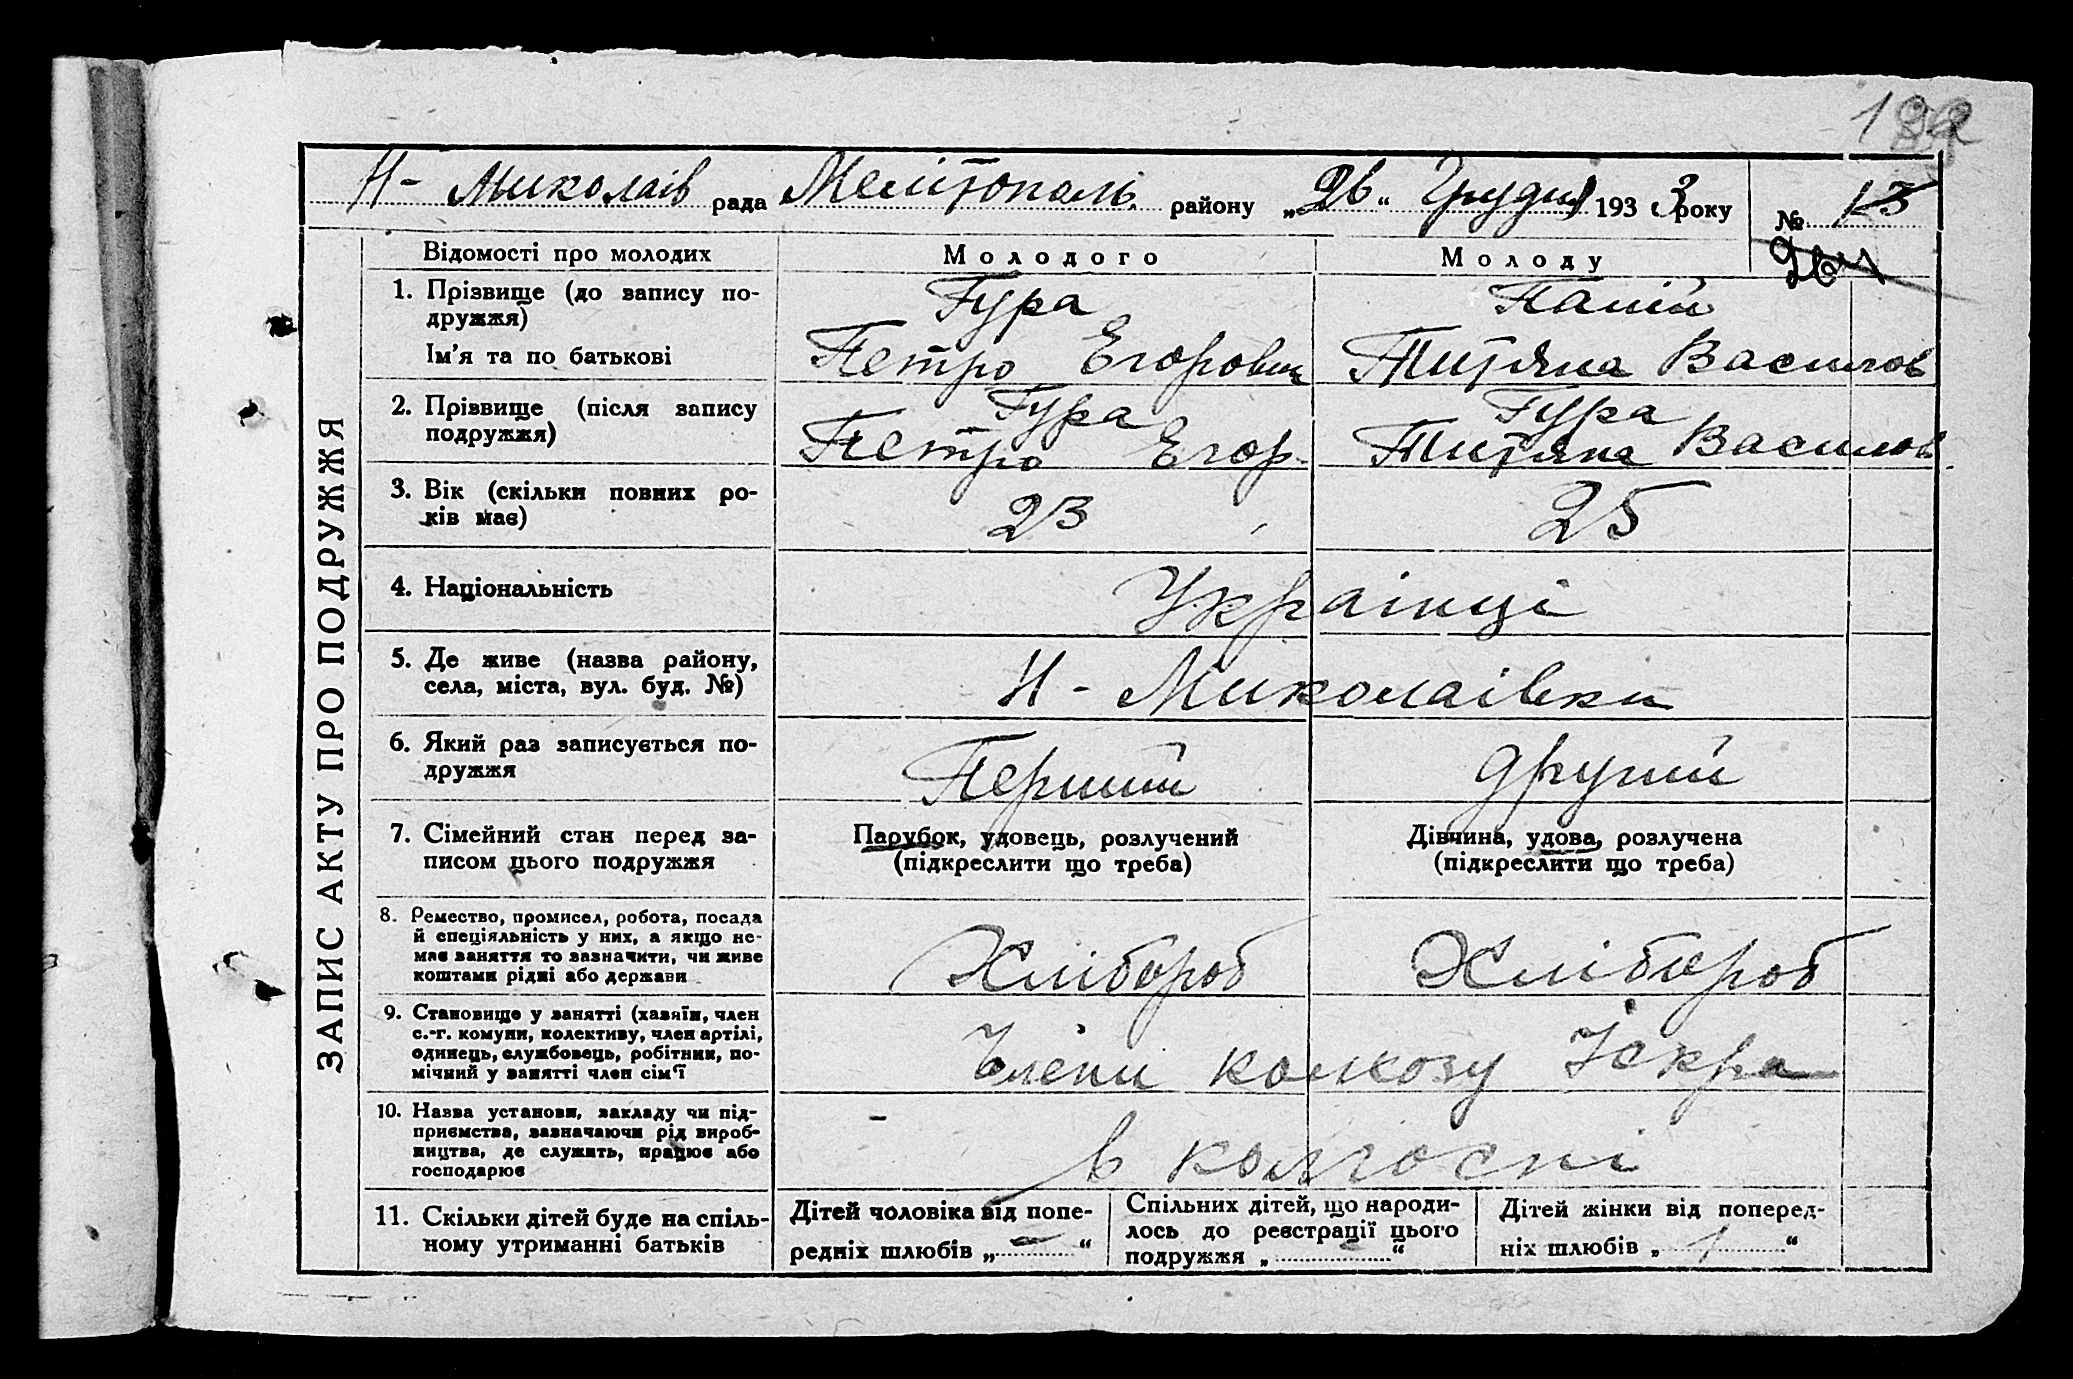 Н- Миколаїв рада Мелітополь району „26“ Грудня 1933 року № 13
ЗАПИС АКТУ ПРО ПОДРУЖЖЯ
Відомості про молодих
Молодого
Молоду
1. Прізвище (до запису по-
дружжя)
Ім'я та по батькові
Гура
Петро Егорович
Палій
Титяна Василов
2. Прізвище (після запису
подружжя)
Гура
Петро Егор.
Гура
Титяна Василов.
3. Вік (скільки повних ро-
ків має)
23
25
4. Національність
Українці
5. Де живе (назва району,
села, міста, вул. буд. №)
Н - Миколаівки
6. Який раз записується по-
дружжя
Перший
другий
7. Сімейний стан перед за-
писом цього подружжя
Парубок, удовець, розлучений
(підкреслити що треба)
Дівчина, удова, розлучена
(підкреслити що треба)
8. Ремество, промисел, робота, посада
й спеціяльність у них, а якщо не-
має заняття то зазначити, чи живе
коштами рідні або держави
Хлібороб
Хлібороб
9. Становище у занятті (хазяїн, член
с.-г. комуни, колективу, член артілі,
одинець, службовець, робітник, по-
мічний у занятті член сім'ї
Члени колхозу Іскра
10. Назва установи, закладу чи під-
приємства, зазначаючи рід вироб-
ництва, де служить, працює або
господарює
- в колгоспі
11. Скільки дітей буде на спіль-
ному утриманні батьків
Дітей чоловіка від попе-
редніх шлюбів „ — “
Спільних дітей, що народи-
лось до реєстрації цього
подружжя „ — “
Дітей жінки від поперед-
ніх шлюбів „ 1 “